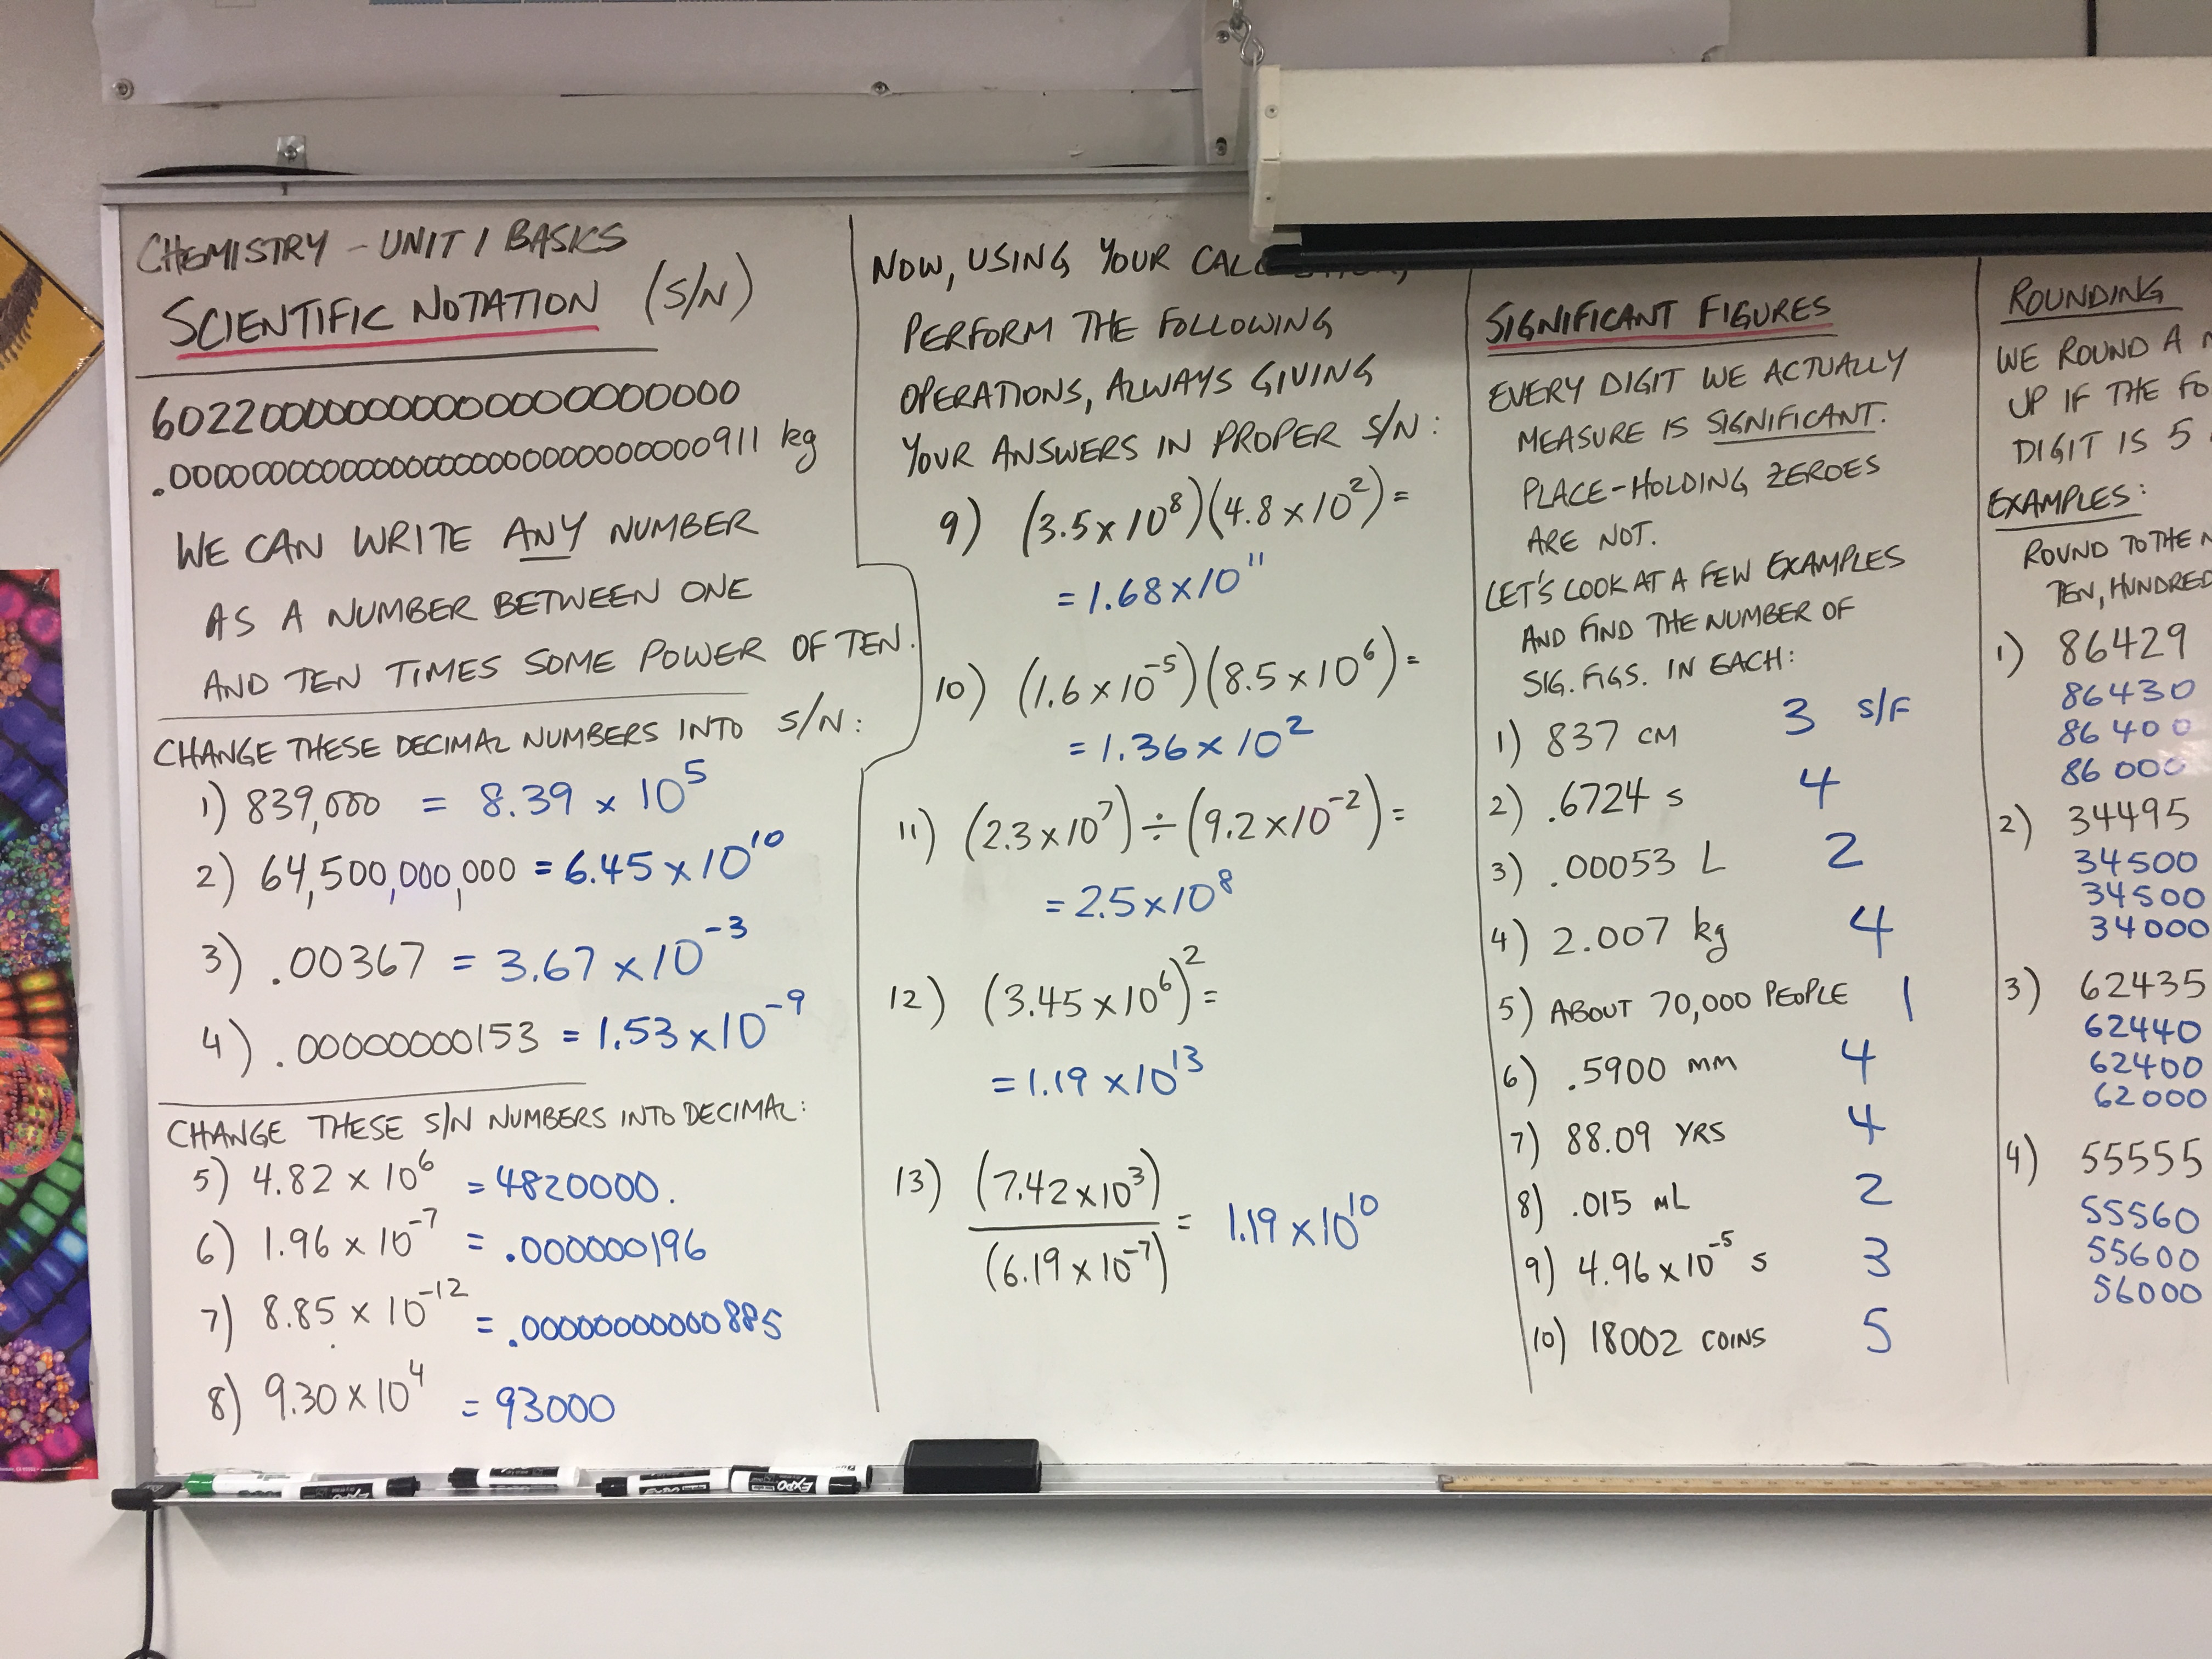 CHEMISTRY - UNIT 1 BASICS
SCIENTIFIC NOTATION (S/N)
602200000000000000000000
.000000000000000000000000000000911 kg
WE CAN WRITE ANY NUMBER
AS A NUMBER BETWEEN ONE
AND TEN TIMES SOME POWER OF TEN.
CHANGE THESE DECIMAL NUMBERS INTO S/N:
1) 839,000 = 8.39 x 10⁵
2) 64,500,000,000 = 6.45 x 10¹⁰
3) .00367 = 3.67 x 10⁻³
4) .00000000153 = 1.53 x 10⁻⁹
CHANGE THESE S/N NUMBERS INTO DECIMAL:
5) 4.82 x 10⁶ = 4820000.
6) 1.96 x 10⁻⁷ = .000000196
7) 8.85 x 10⁻¹² = .00000000000885
8) 9.30 x 10⁴ = 93000
NOW, USING YOUR
PERFORM THE FOLLOWING
OPERATIONS, ALWAYS GIVING
YOUR ANSWERS IN PROPER S/N:
9) (3.5 x 10⁸)(4.8 x 10²) =
= 1.68 x 10¹¹
10) (1.6 x 10⁻⁵)(8.5 x 10⁶) =
= 1.36 x 10²
11) (2.3 x 10⁷) ÷ (9.2 x 10⁻²) =
= 2.5 x 10⁸
12) (3.45 x 10⁶)² =
= 1.19 x 10¹³
13) (7.42 x 10³)
= 1.19 x 10¹⁰
(6.19 x 10⁻⁷)
SIGNIFICANT FIGURES
EVERY DIGIT WE ACTUALLY
MEASURE IS SIGNIFICANT.
PLACE-HOLDING ZEROES
ARE NOT.
LET'S LOOK AT A FEW EXAMPLES
AND FIND THE NUMBER OF
SIG. FIGS. IN EACH:
1) 837 CM 3 S/F
2) .6724 s 4
3) .00053 L 2
4) 2.007 kg 4
5) ABOUT 70,000 PEOPLE 1
6) .5900 mm 4
7) 88.09 YRS 4
8) .015 mL 2
9) 4.96 x 10⁻⁵ s 3
10) 18002 COINS 5
ROUNDING
WE ROUND A
UP IF THE
DIGIT IS 5
EXAMPLES:
ROUND TO THE
TEN, HUNDRED
1) 86429
86430
86400
86000
2) 34495
34500
34500
34000
3) 62435
62440
62400
62000
4) 55555
55560
55600
56000
EXPO
EXPO